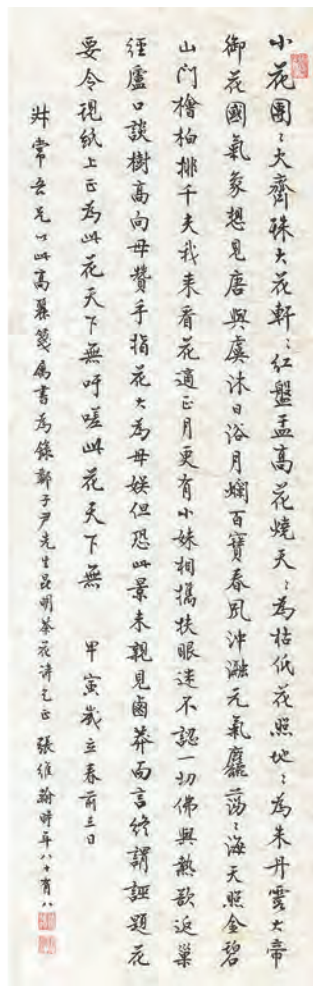 小花團〻大齊珠大花軒〻紅盤盂高花燒天〻為枯低花照地〻為朱丹霄大帝
御花國氣象想見唐與虞沐日浴月爛百寶春風沖瀜元氣麤蕩〻海天照金碧
山门檜柏排千夫我来看花適正月更有小妹相攜扶眼迷不認一切佛興熱欲返巢
經廬口談樹高向母贊手指花大為母娱但恐此景未親見鹵莽而言終謂誣題花
要令現紙上正為此花天下無吁嗟此花天下無 甲寅歲立春前三日
常吾兄以此高麗箋屬書為錄鄭子尹先生昆明茶花詩乞正 張維翰時年八十有八